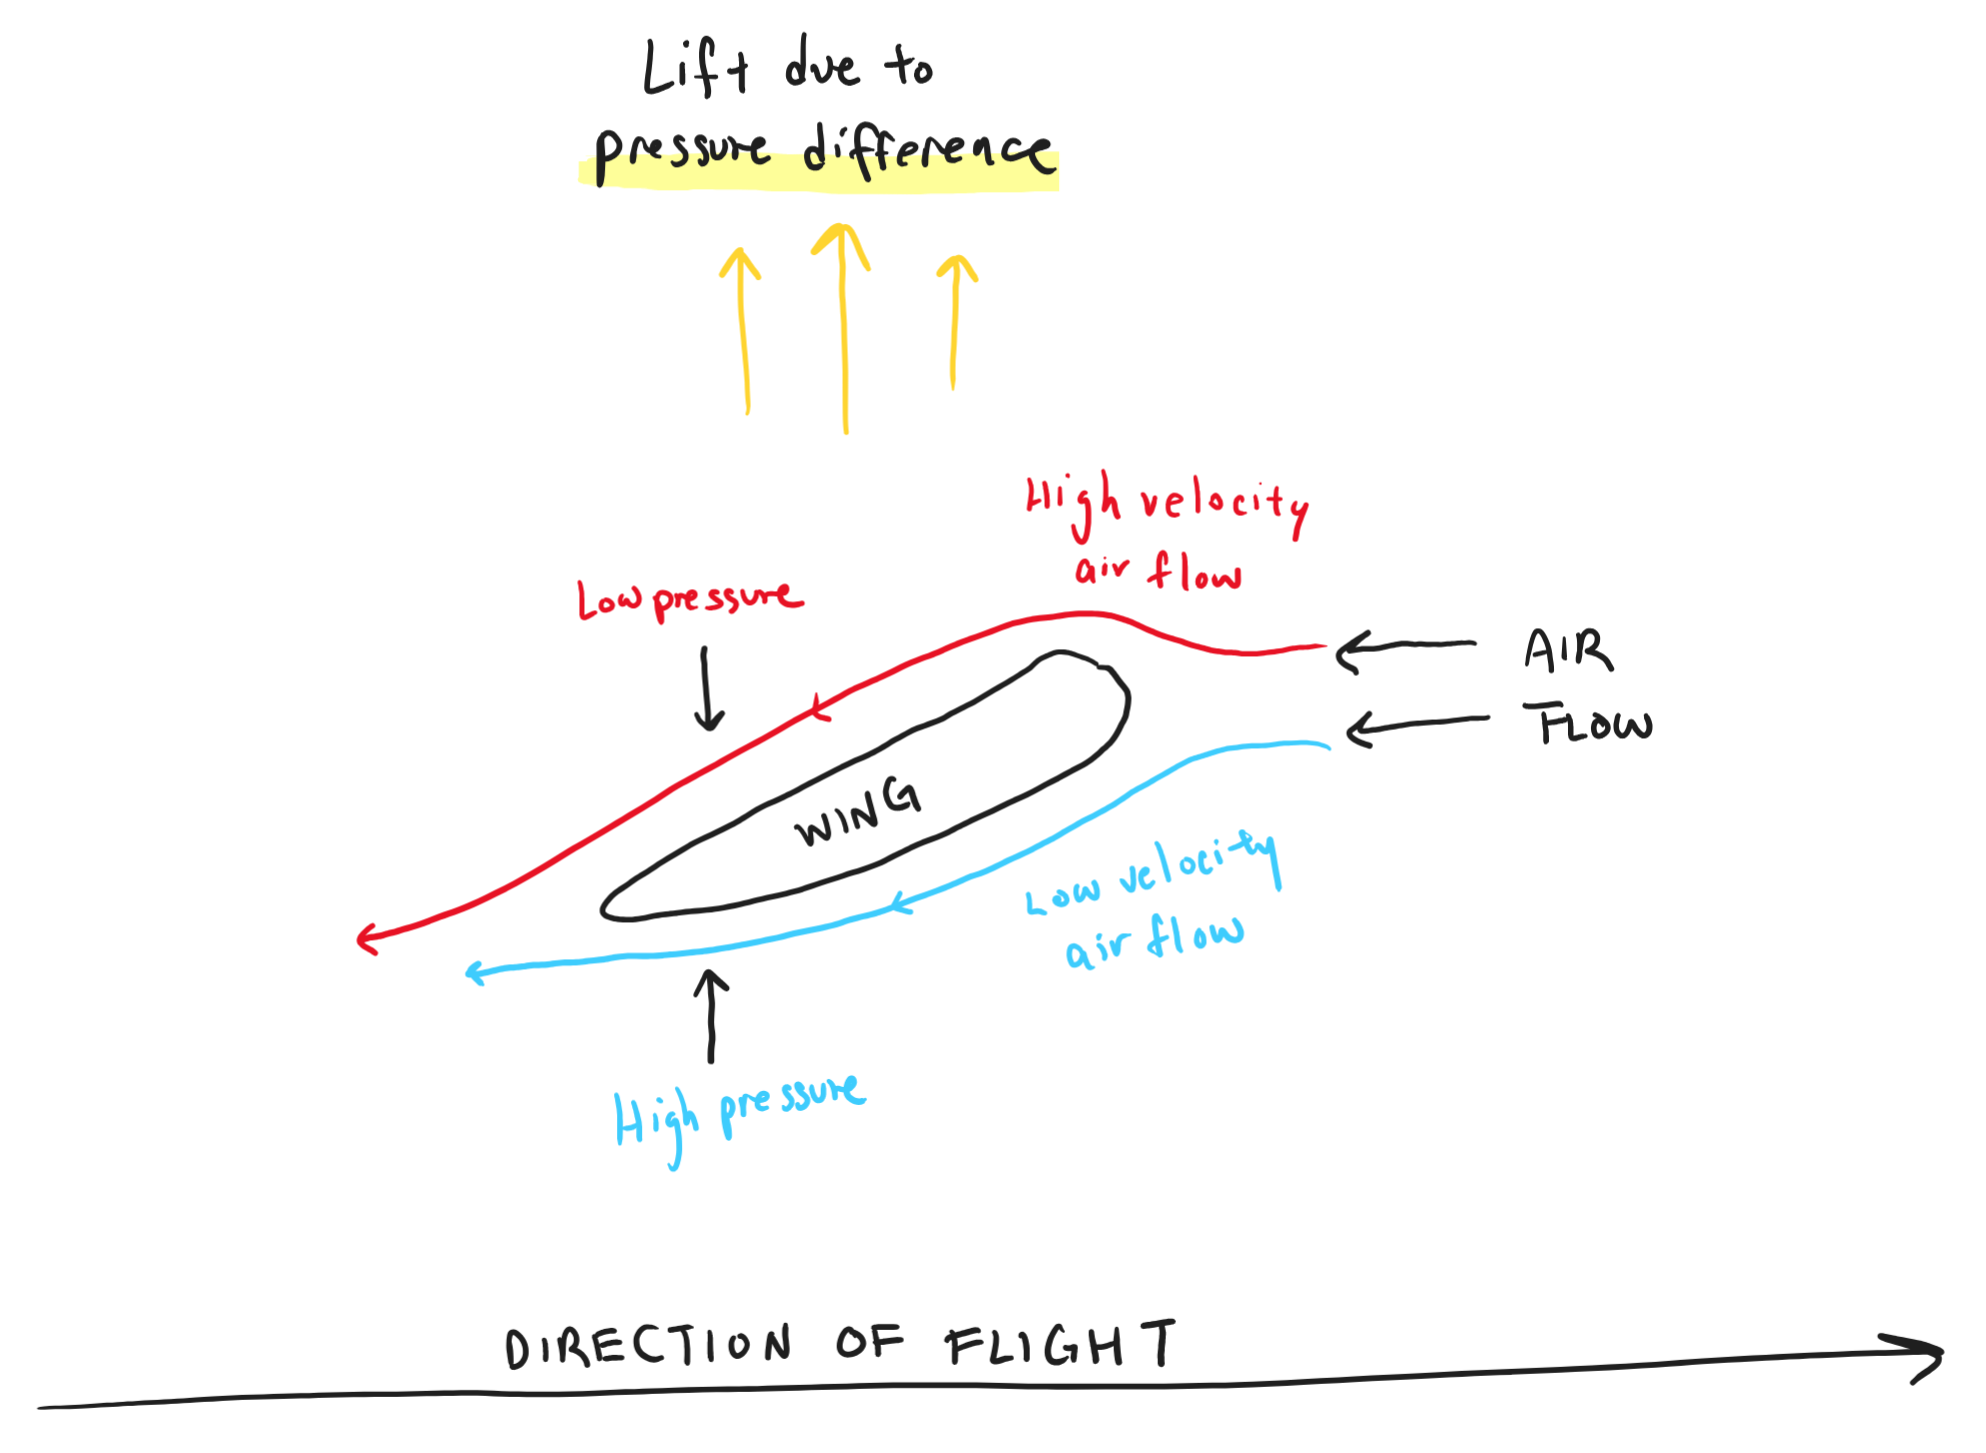 Lift due to
pressure difference
High velocity
air flow
Low pressure
AIR
FLOW
WING
Low velocity
air flow
High pressure
DIRECTION OF FLIGHT